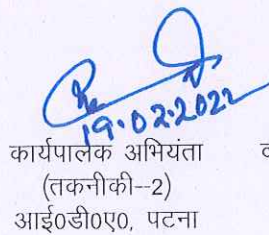 19.02.2022
कार्यपालक अभियंता
(तकनीकी--2)
आई०डी०ए०, पटना